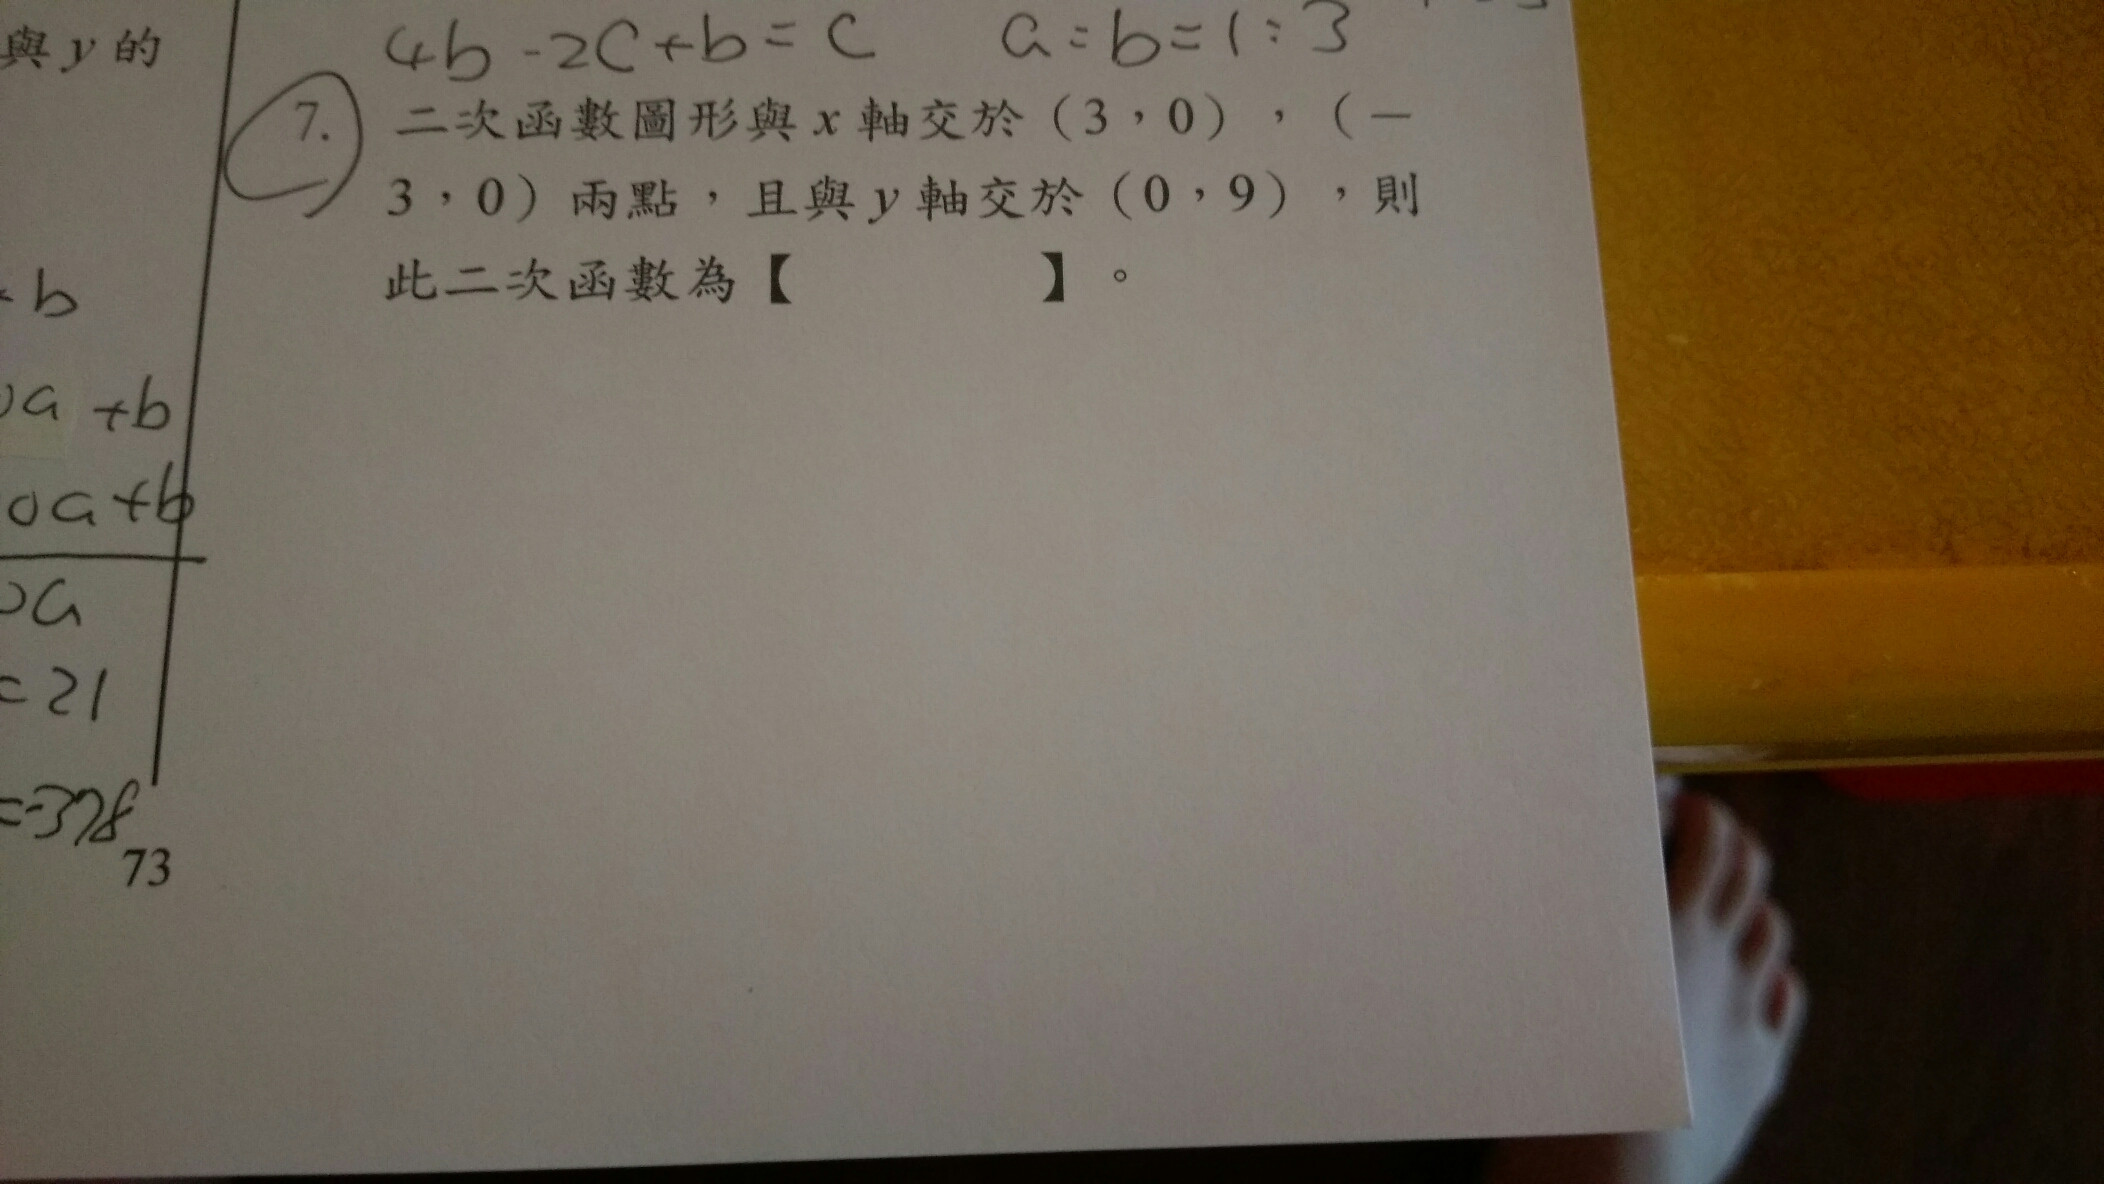 與y的
+b
0a +b
0a+b
0a
=21
73
4b-2c+b=c a:b=1:3
7. 二次函數圖形與x軸交於(3,0),(-
3,0)兩點,且與y軸交於(0,9),則
此二次函數為【 】。